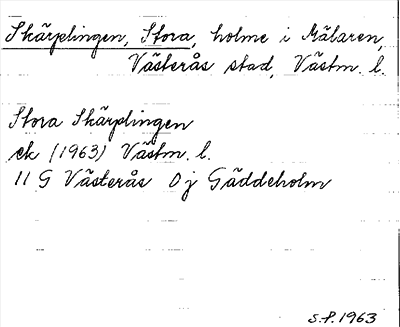 Skärplingen, Stora, holme i Mälaren,
Västerås stad, Västm. l.
Stora Skärplingen
ek (1963) Västm. l.
11 G Västerås 0 j Gäddeholm
S.P. 1963